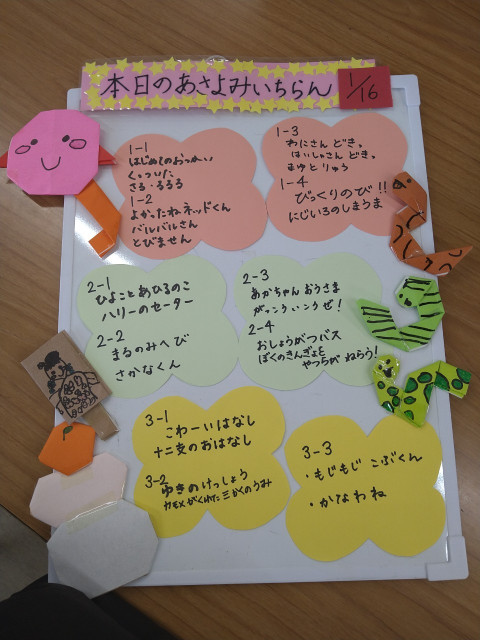 本日のあさよみいちらん
1/16
1-1
はじめてのおつかい
くっついた
さる・るるる
1-2
よかったねネッドくん
バルバルさん
とびません
1-3
わにさん どきっ
はいしゃさん どきっ
まゆとりゅう
1-4
びっくりのび!!
にじいろのしまうま
2-1
ひよことあひるのこ
ハリーのセーター
2-2
まるのみへび
さかなくん
2-3
あかちゃん おうさま
がっこういこうぜ!
2-4
おしょうがつバス
ぼくのきんぎょを
やつらが ねらう!
3-1
こわーいはなし
十二支のおはなし
3-2
ゆきのけっしょう
カモメがくれた三かくのうみ
3-3
・もじもじ こぶくん
・かなわね